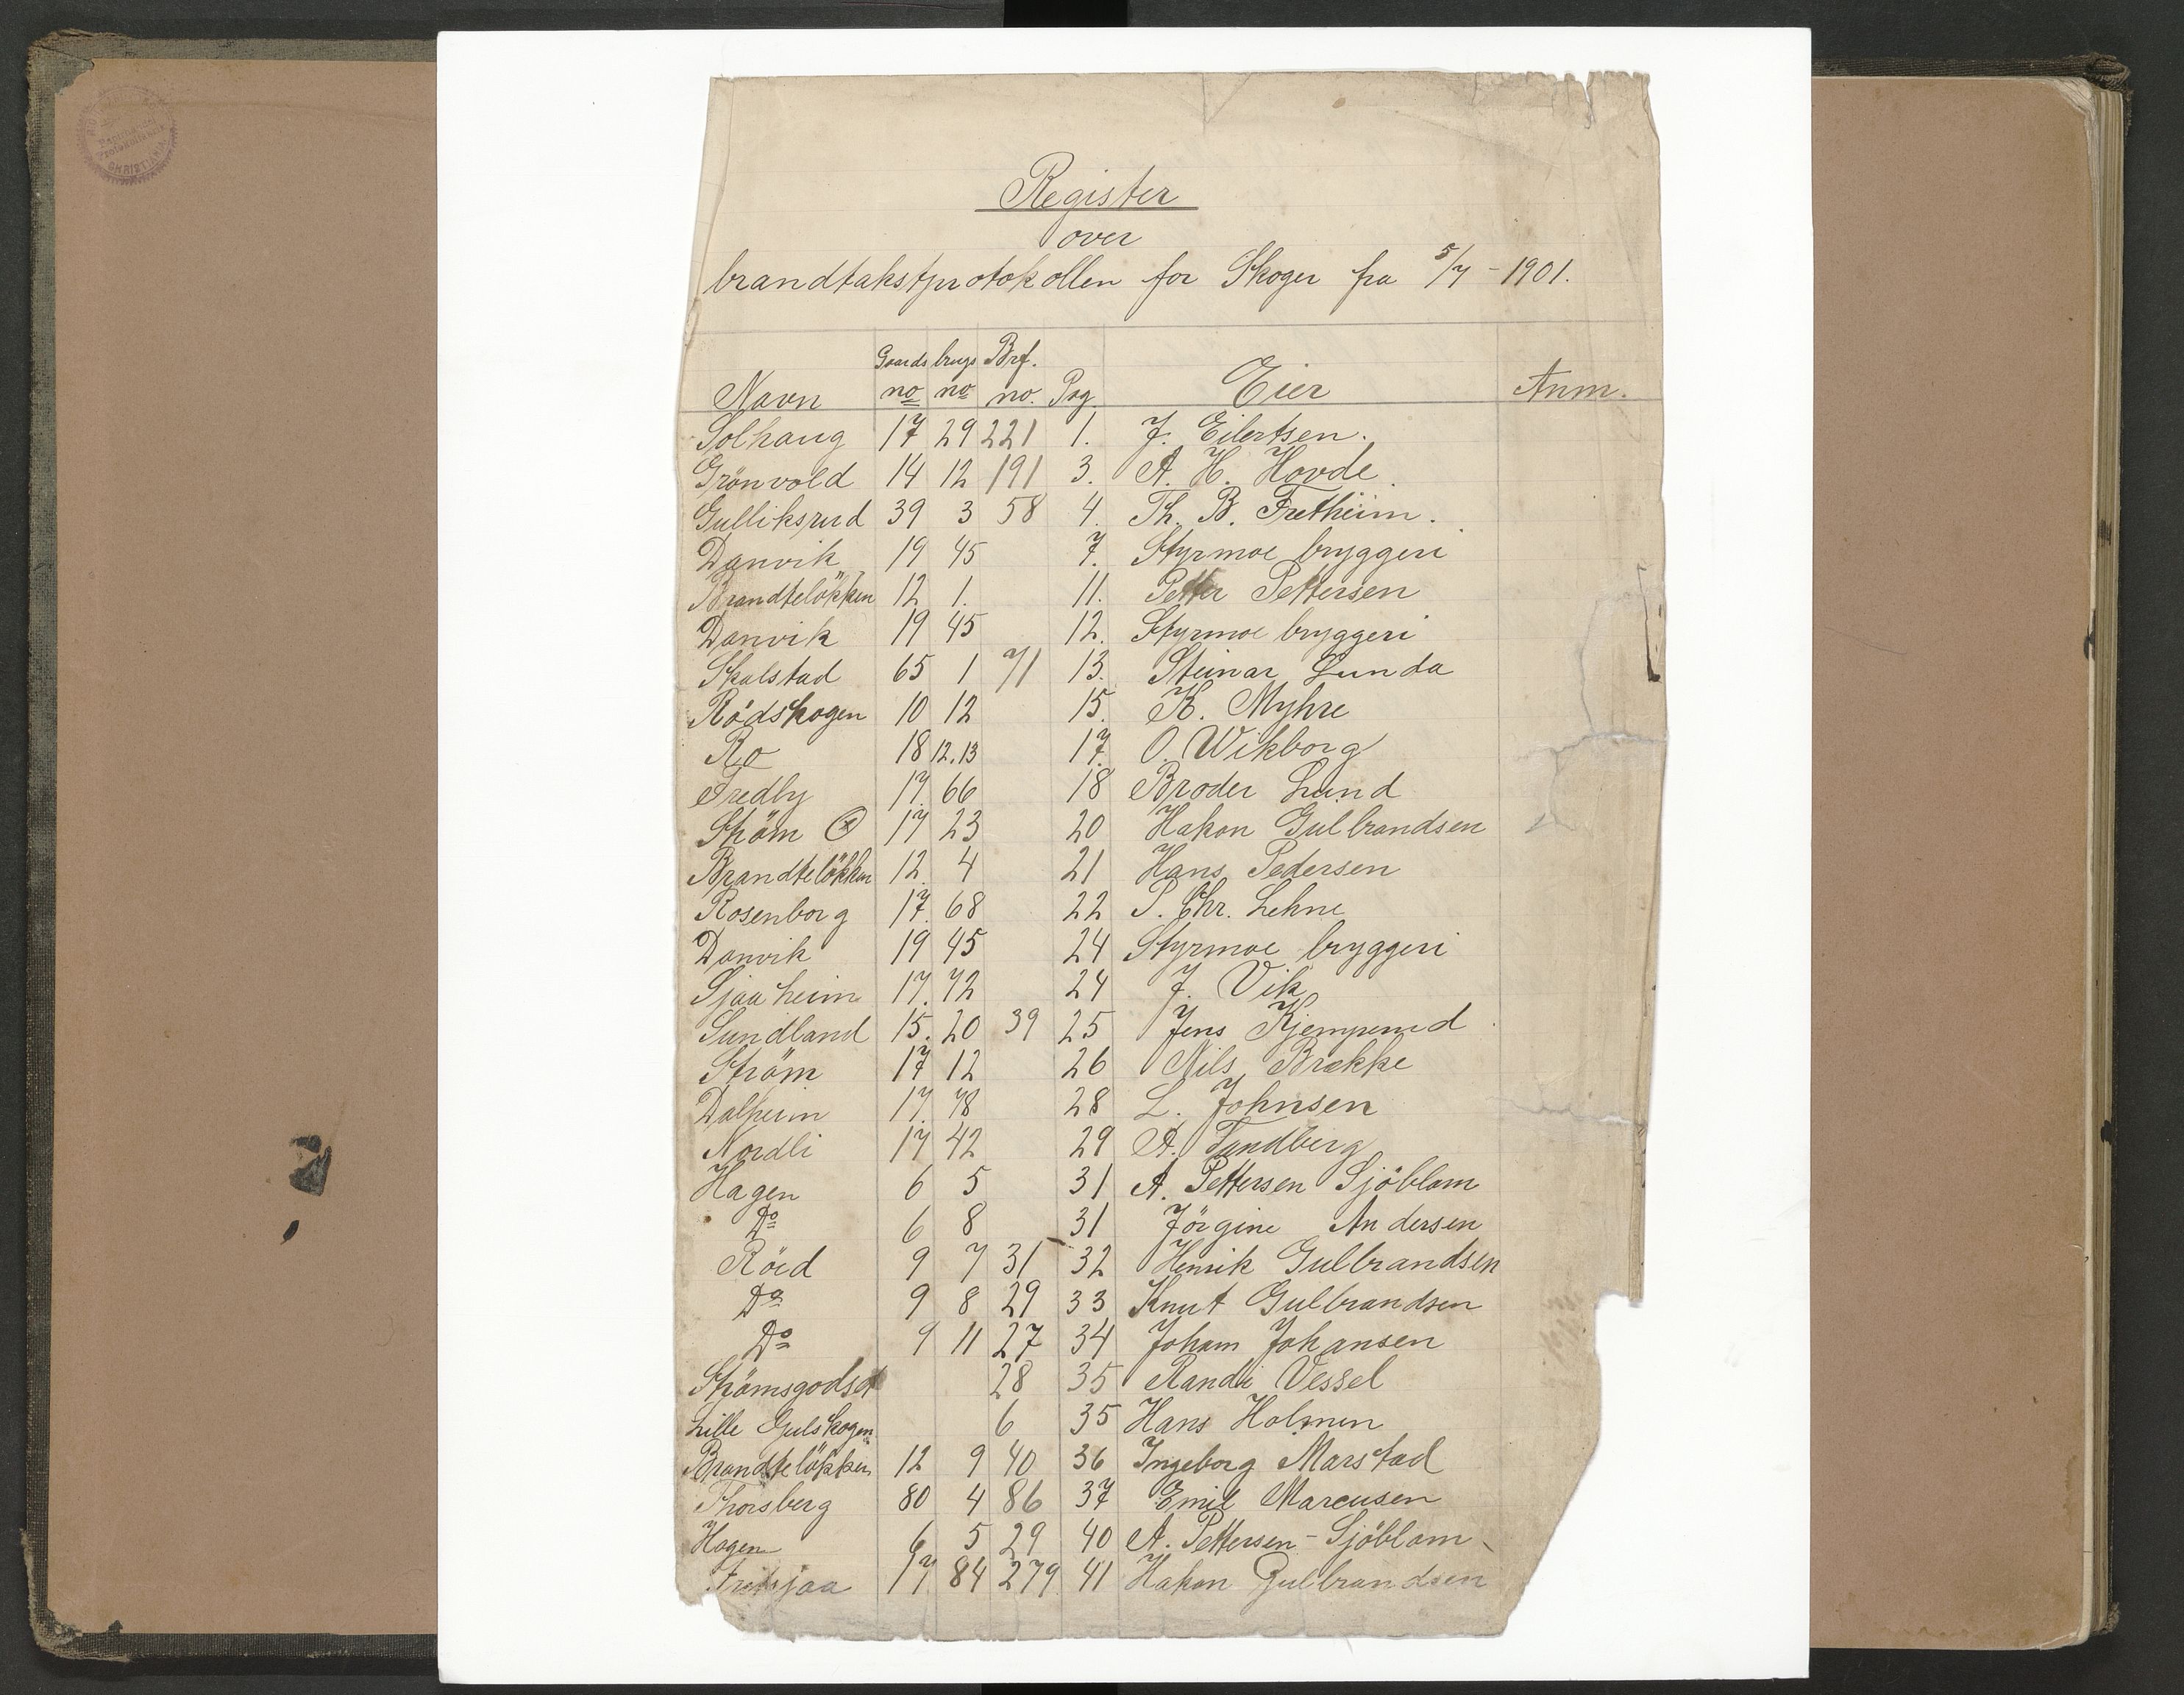 Register
over
brandtakstprotokollen for Skoger fra 5/7 - 1901.
Navn Gaards no brugs no Brf. no. Pag. Eier Anm.
Solhaug 17 29 221 1. J. Eilertsen.
Grönvold 14 12 191 3. A. H. Hovde.
Gulliksrud 39 3 58 4. Th. B. Fretheim.
Danvik 19 45 7. Styrmoe bryggeri
Brandtelökken 12 1. 11. Petter Pettersen
Danvik 19 45 12. Styrmoe bryggeri
Skalstad 65 1 71 13. Steinar Lunda
Rödskogen 10 12 15. K. Myhre
Ro 18 12.13 17. O. Wikborg
Fredly 17. 66 18 Broder Lund
Ström 17 23 20 Hakon Gulbrandsen
Brandtelökken 12. 4 21 Hans Pedersen
Rosenborg 17. 68 22 P. Chr. Lehne
Danvik 19 45 24 Styrmoe bryggeri
Sjaaheim 17. 72 24 J. Vik
Sundland 15. 20 39 25 Jens Kjemperud
Ström 17 12 26 Nils Brække
Dalheim 17. 78 28 L. Johnsen
Nordli 17 42 29 A. Tandberg
Hagen 6 5 31 A. Pettersen Sjöblom
Do 6 8 31 Jörgine Andersen
Röed 9 7 31 32 Henrik Gulbrandsen
Do 9 8 29 33 Knut Gulbrandsen
Do 9 11 27 34 Joham Johansen
Strömsgodset 28 35 Randi Vessel
Lille Gulskogen 6 35 Hans Holmen
Brandtelökken 12 9 40 36 Ingeborg Marstad
Thorsberg 80 4 86 37 Emil Marcusen
Hagen 6 5 29 40 A. Pettersen - Sjöblom
17. 84 279. 41 Hakon Gulbrandsen
CHRISTIANIA